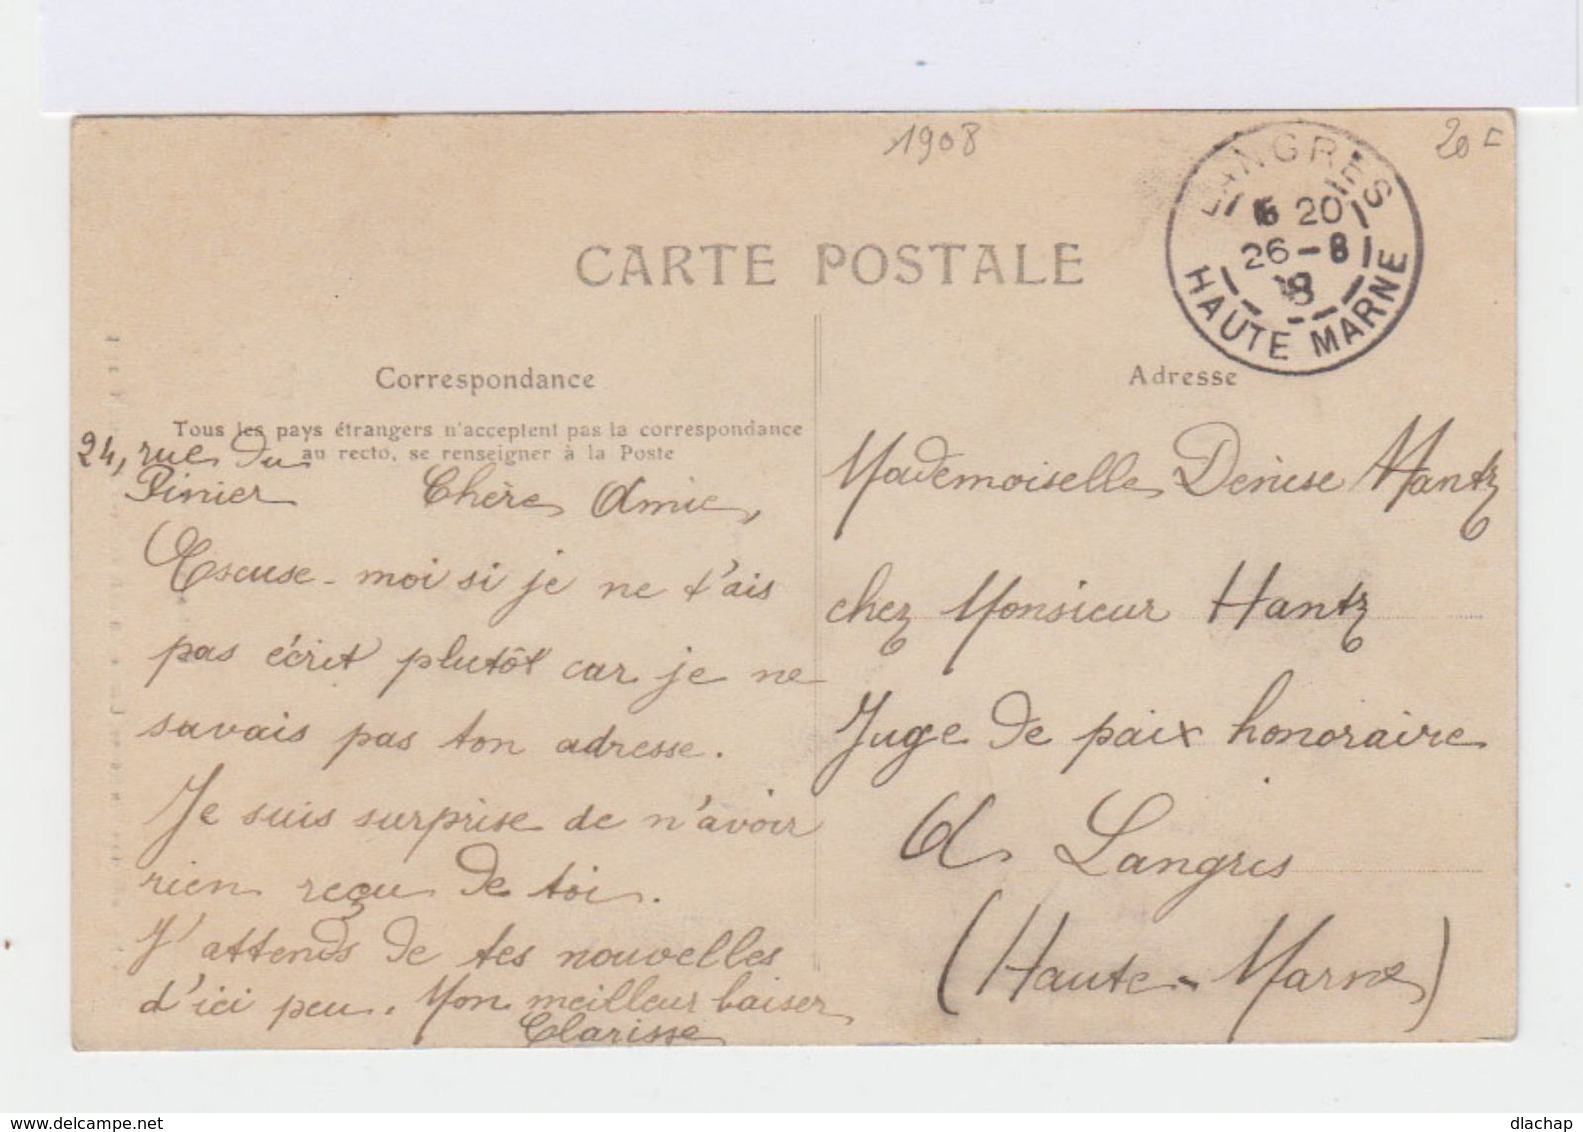 1908
20F
LANGRES
20
26-8
HAUTE MARNE
CARTE POSTALE
Correspondance
Tous les pays étrangers n'acceptent pas la correspondance
au recto, se renseigner à la Poste
24, rue du
Pinier
Chère Amie,
Escuse-moi si je ne t'ais
pas écrit plutôt car je ne
savais pas ton adresse.
Je suis surprise de n'avoir
rien reçu de toi.
J'attends de tes nouvelles
d'ici peu. Mon meilleur baiser
Clarisse
Adresse
Mademoiselle Denise Hantz
chez Monsieur Hantz
Juge de paix honoraire
A Langres
(Haute-Marne)
dlachap